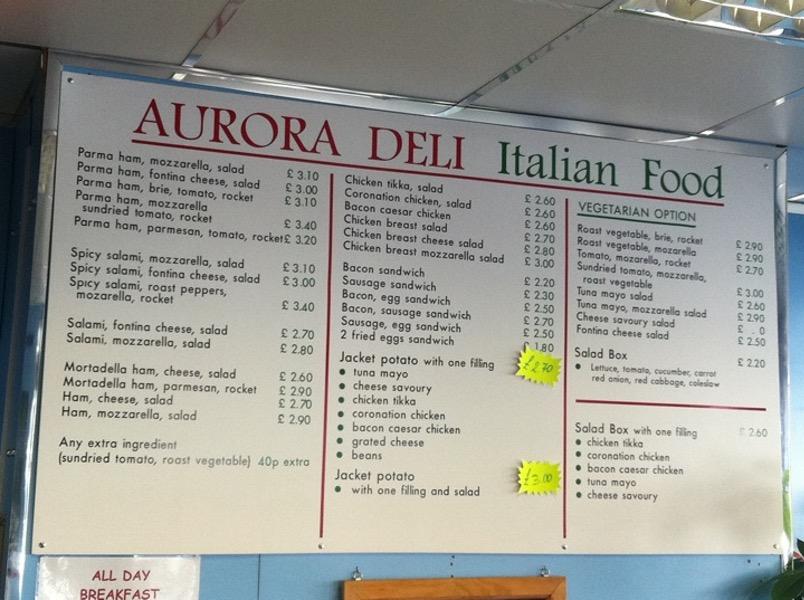 AURORA DELI Italian Food
Parma ham, mozzarella, salad £ 3.10
Parma ham, fontina cheese, salad £ 3.00
Parma ham, brie, tomato, rocket £ 3.10
Parma ham, mozzarella
sundried tomato, rocket £ 3.40
Parma ham, parmesan, tomato, rocket £ 3.20
Spicy salami, mozzarella, salad £ 3.10
Spicy salami, fontina cheese, salad £ 3.00
Spicy salami, roast peppers,
mozarella, rocket £ 3.40
Salami, fontina cheese, salad £ 2.70
Salami, mozzarella, salad £ 2.80
Mortadella ham, cheese, salad £ 2.60
Mortadella ham, parmesan, rocket £ 2.90
Ham, cheese, salad £ 2.70
Ham, mozzarella, salad £ 2.90
Any extra ingredient
(sundried tomato, roast vegetable) 40p extra
Chicken tikka, salad £ 2.60
Coronation chicken, salad £ 2.60
Bacon caesar chicken £ 2.60
Chicken breast salad £ 2.70
Chicken breast cheese salad £ 2.80
Chicken breast mozzarella salad £ 3.00
Bacon sandwich £ 2.20
Sausage sandwich £ 2.30
Bacon, egg sandwich £ 2.50
Bacon, sausage sandwich £ 2.70
Sausage, egg sandwich £ 2.50
2 fried eggs sandwich 1.80
Jacket potato with one filling £2.70
• tuna mayo
• cheese savoury
• chicken tikka
• coronation chicken
• bacon caesar chicken
• grated cheese
• beans
Jacket potato £3.00
• with one filling and salad
VEGETARIAN OPTION
Roast vegetable, brie, rocket £ 2.90
Roast vegetable, mozarella £ 2.90
Tomato, mozarella, rocket £ 2.70
Sundried tomato, mozzarella,
roast vegetable £ 3.00
Tuna mayo salad £ 2.60
Tuna mayo, mozzarella salad £ 2.90
Cheese savoury salad £
Fontina cheese salad £ 2.50
Salad Box £ 2.20
• Lettuce, tomato, cucumber, carrot
red onion, red cabbage, coleslaw
Salad Box with one filling £ 2.60
• chicken tikka
• coronation chicken
• bacon caesar chicken
• tuna mayo
• cheese savoury
ALL DAY
BREAKFAST